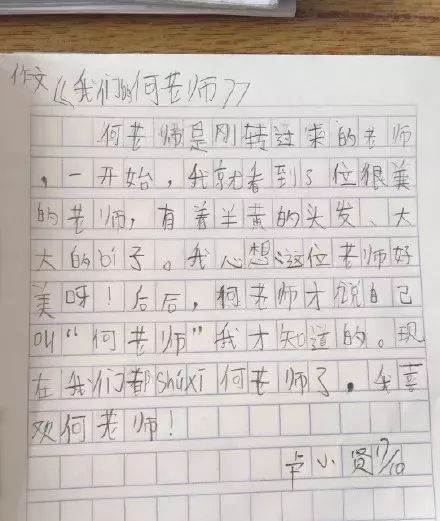 作文《《我们的何老师》》
何老师是刚转过来的老师
，一开始，我就看到了位很美
的老师，有着半黄的头发、大
大的bí子。我心想这位老师好
美呀！后后，何老师才说自己
叫“何老师”我才知道的。现
在我们都shúxī何老师了，我喜
欢何老师！
卢小贤7/10